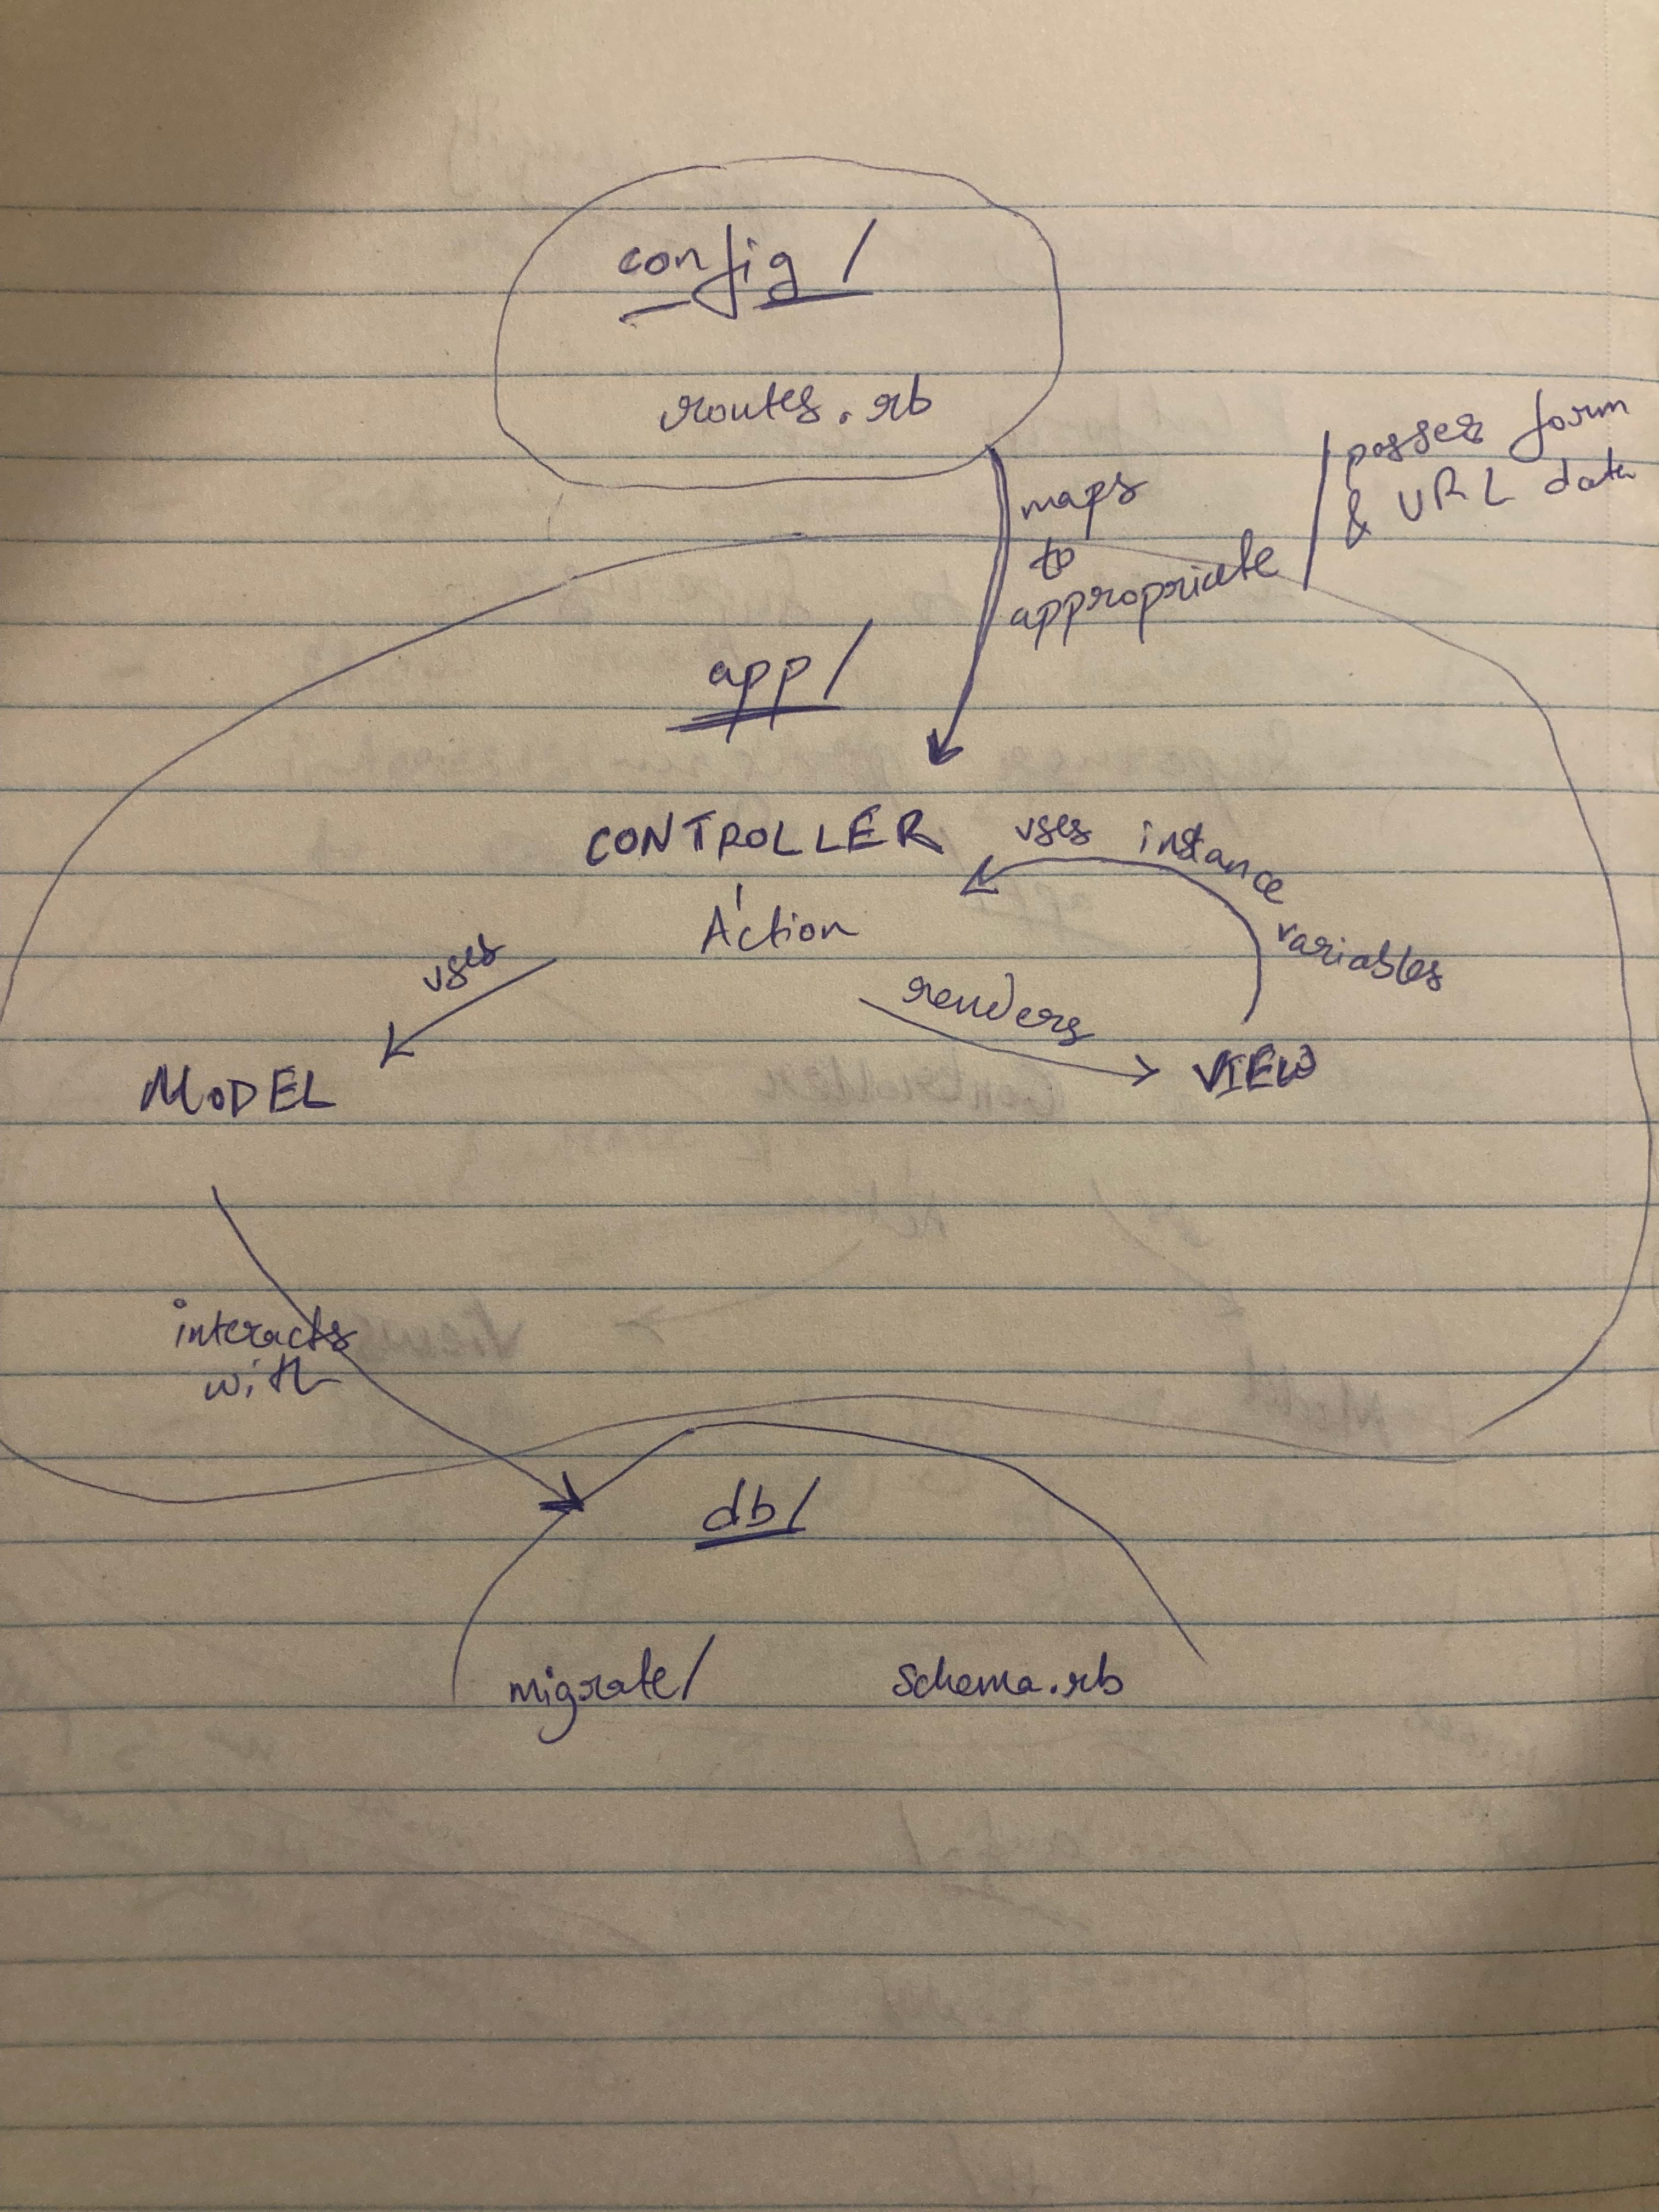 config/
routes.rb
maps
to
appropriate
passes form
& URL data
app/
CONTROLLER
Action
uses instance
variables
uses
renders
MODEL
VIEW
interacts
with
db/
migrate/
schema.rb
Controller
Action
Views
Model